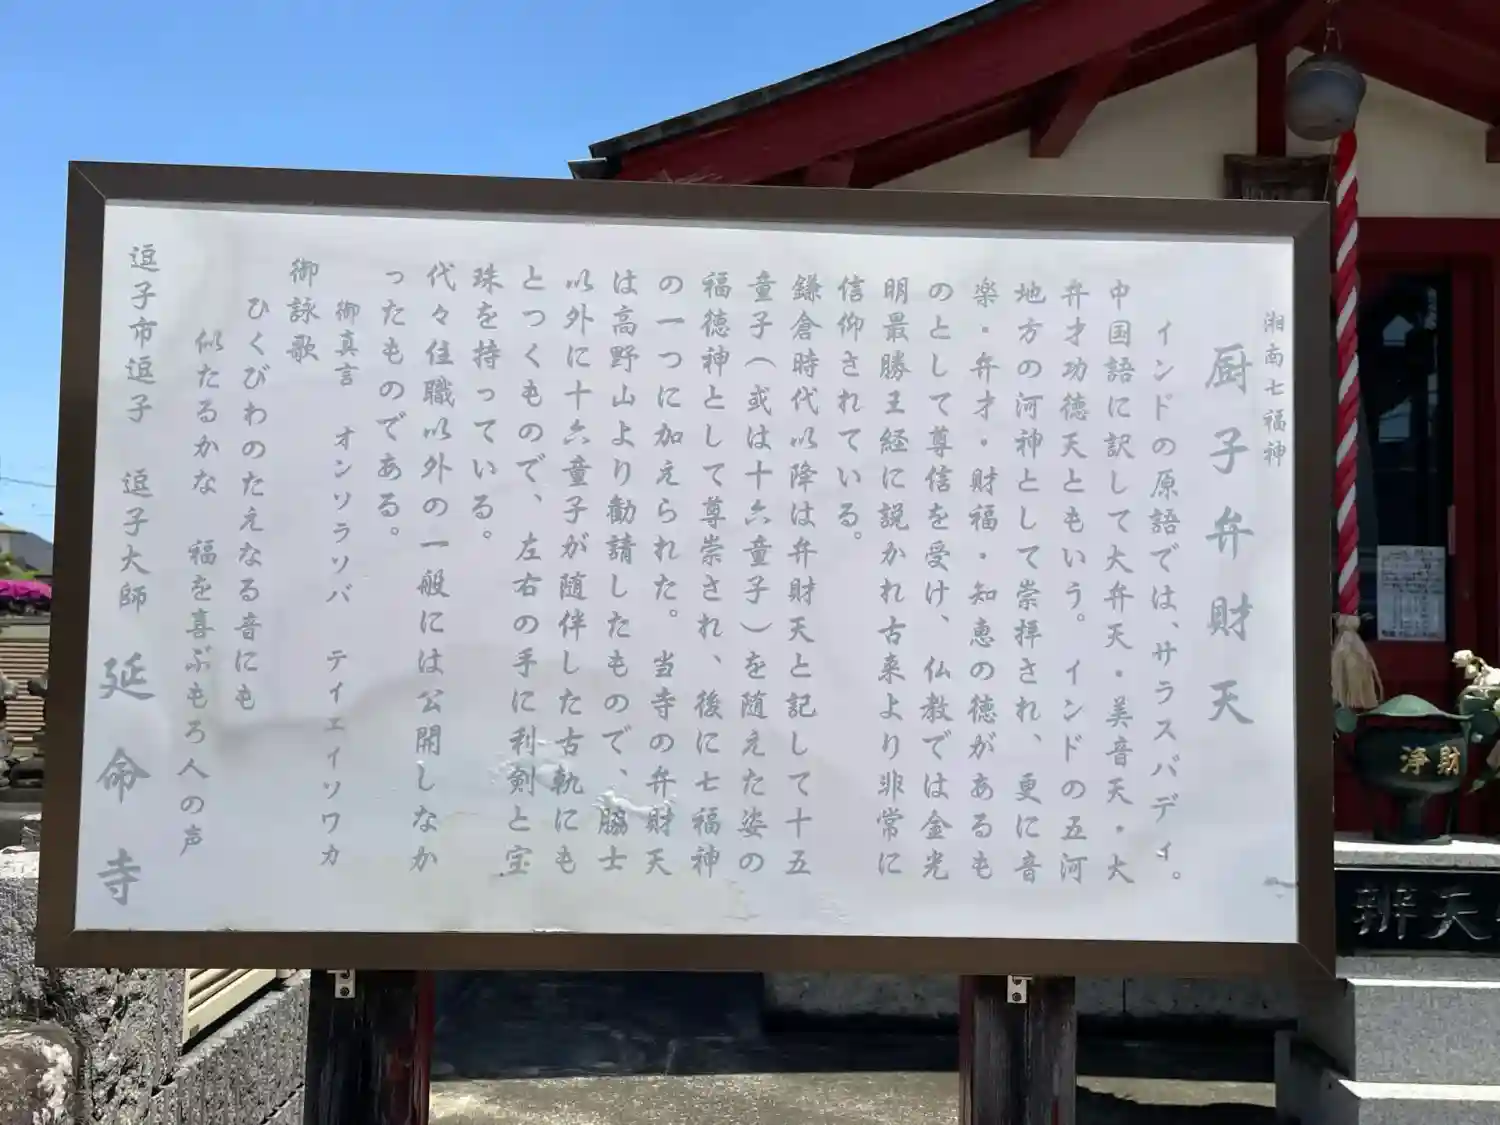 湘南七福神
厨子弁財天
インドの原語では、サラスバディ。
中国語に訳して大弁天・美音天・大
弁才功徳天ともいう。インドの五河
地方の河神として崇拝され、更に音
楽・弁才・財福・知恵の徳があるも
のとして尊信を受け、仏教では金光
明最勝王経に説かれ古来より非常に
信仰されている。
鎌倉時代以降は弁財天と記して十五
童子（或は十六童子）を随えた姿の
福徳神として尊崇され、後に七福神
の一つに加えられた。当寺の弁財天
は高野山より勧請したもので、脇士
以外に十六童子が随伴した古軌にも
とつくもので、左右の手に利剣と宝
珠を持っている。
代々住職以外の一般には公開しなか
ったものである。
御真言 オンソラソバ テイエイソワカ
御詠歌
ひくびわのたえなる音にも
似たるかな 福を喜ぶもろ人の声
逗子市逗子 逗子大師 延命寺
浄財
辨天